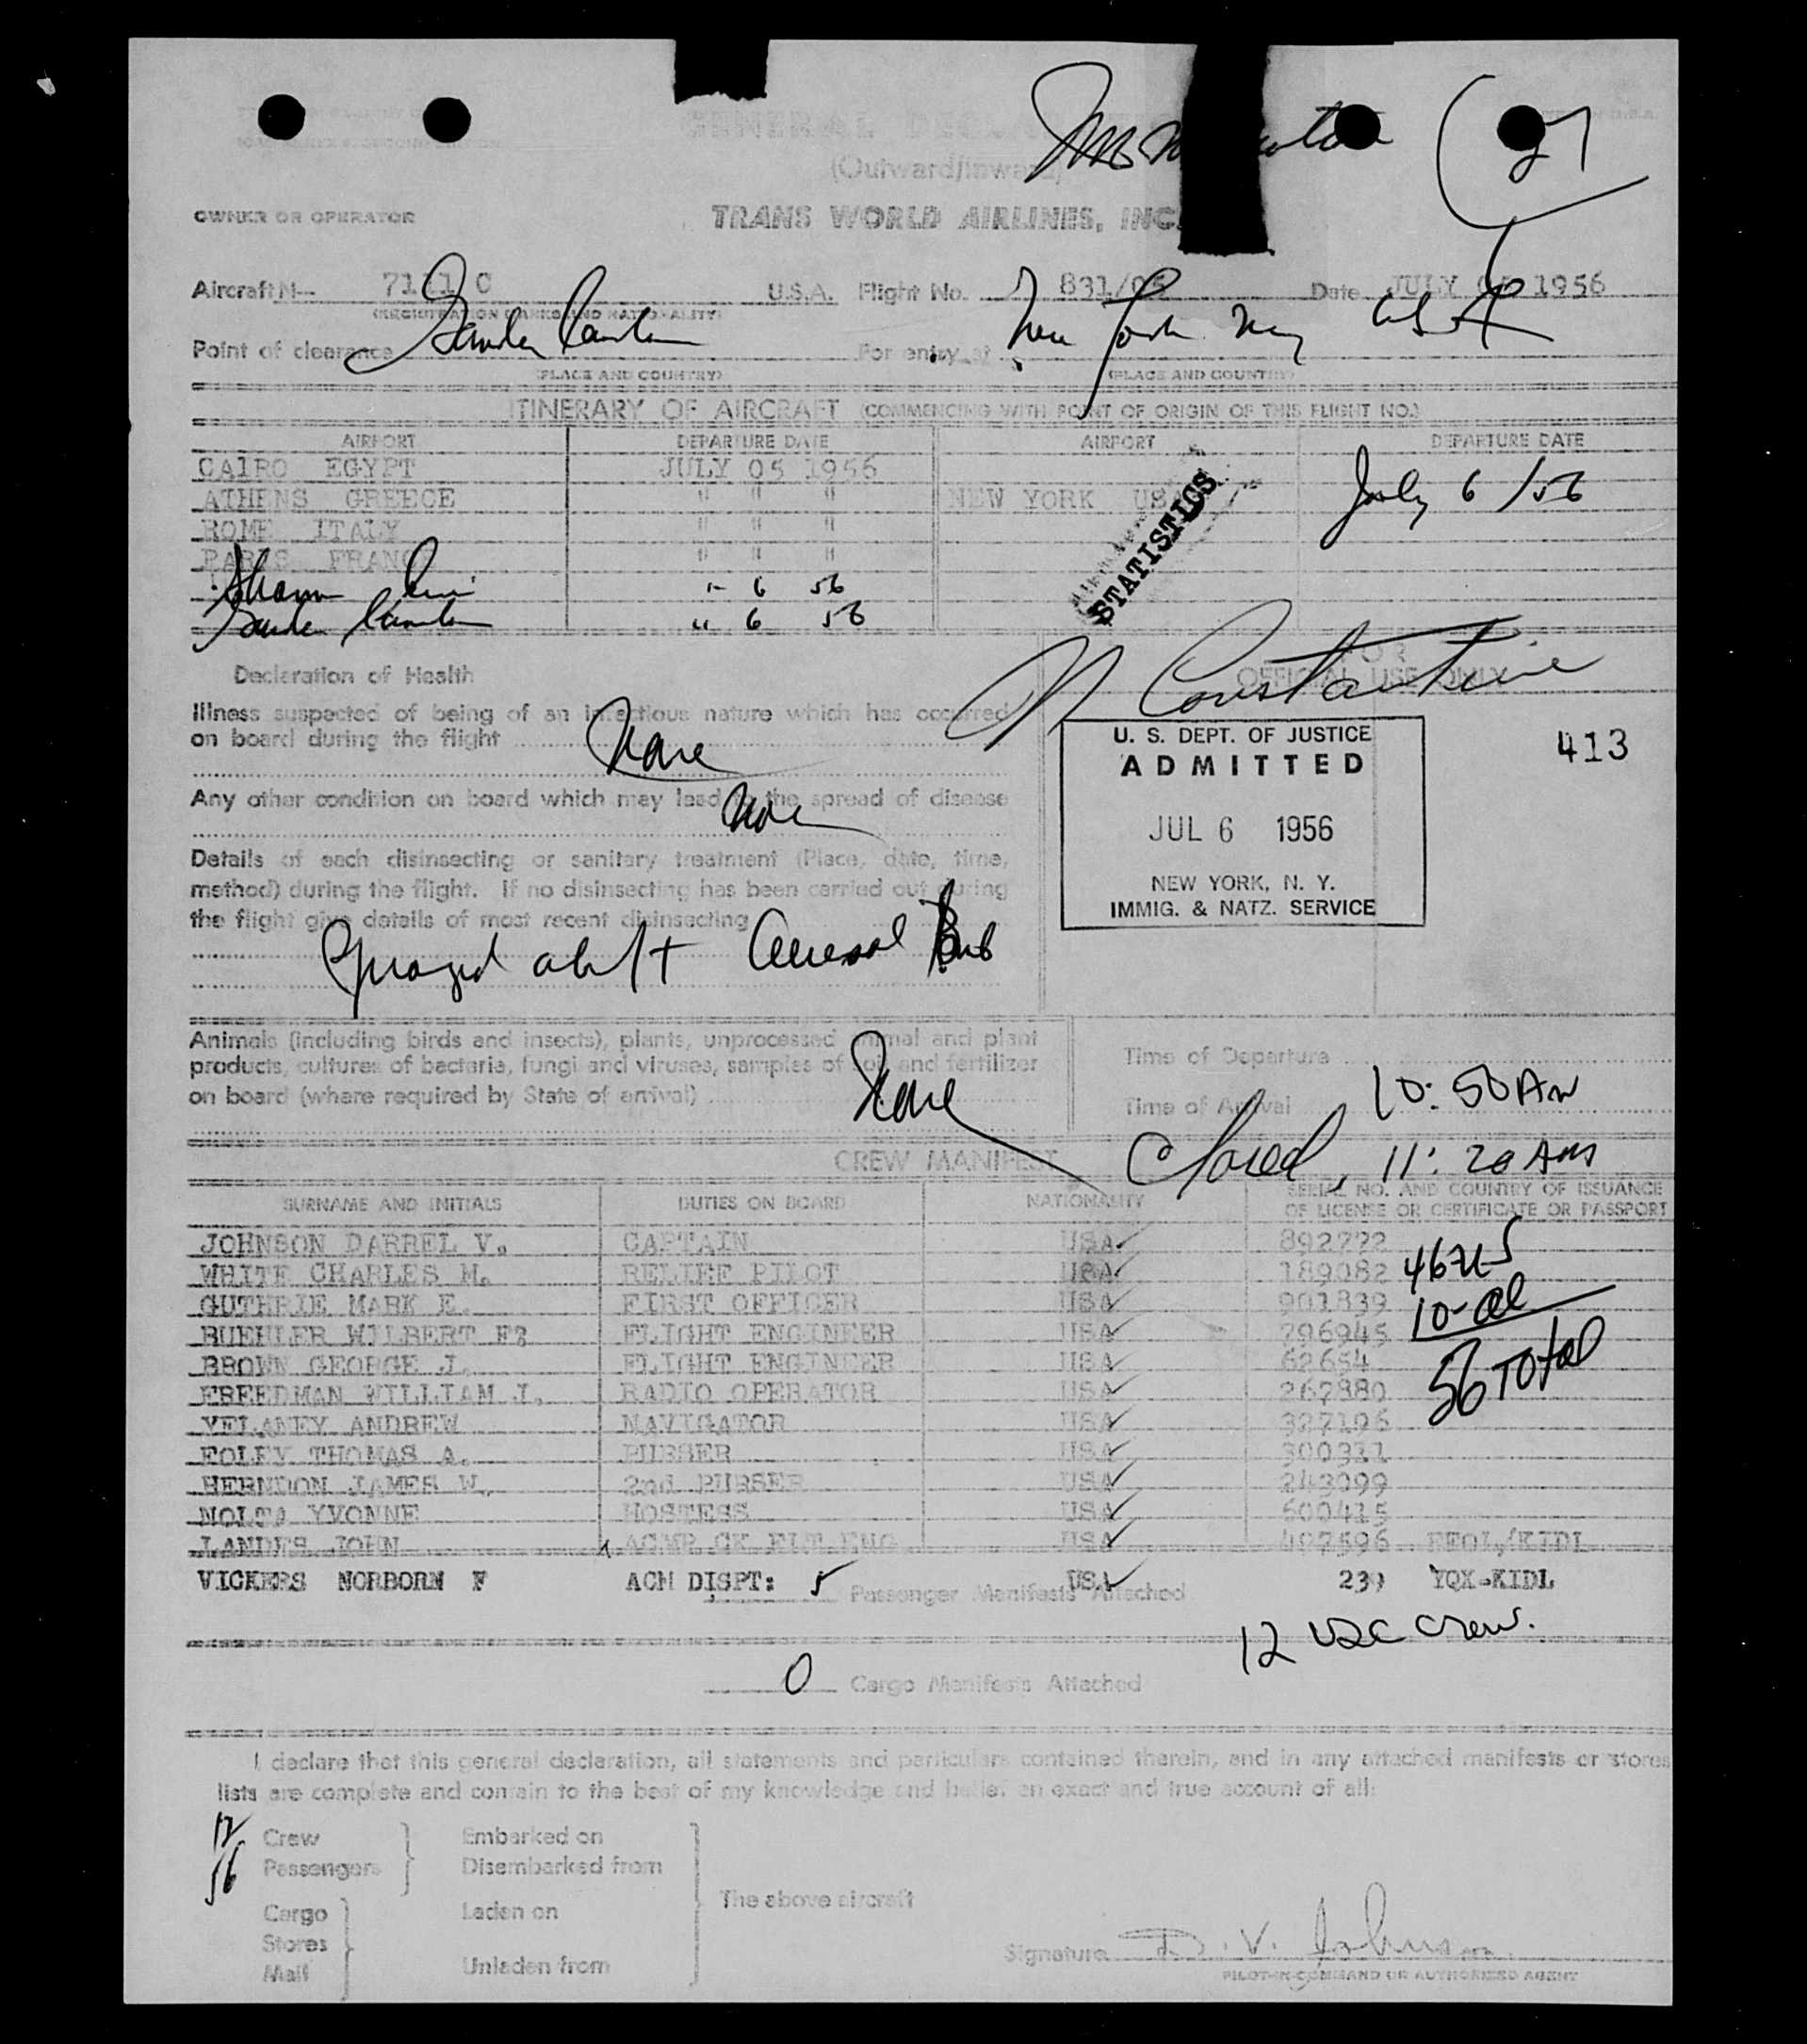 GENERAL DECLARATION
(Outward/Inward)
27
OWNER OR OPERATOR TRANS WORLD AIRLINES, INC.
Aircraft N- 7111 C U.S.A. Flight No. 831/05 Date JULY 05 1956
(REGISTRATION MARKS AND NATIONALITY)
Point of clearance Gander Canada For entry at New York NY USA
(PLACE AND COUNTRY) (PLACE AND COUNTRY)
ITINERARY OF AIRCRAFT (COMMENCING WITH POINT OF ORIGIN OF THIS FLIGHT NO.)
AIRPORT DEPARTURE DATE AIRPORT DEPARTURE DATE
CAIRO EGYPT JULY 05 1956
ATHENS GREECE " " " NEW YORK USA July 6 /56
ROME ITALY " " "
PARIS FRANCE " " "
Shannon " 6 56
Gander Canada " 6 56
STATISTICS
N Constantine
Declaration of Health
FOR
OFFICIAL USE ONLY
Illness suspected of being of an infectious nature which has occurred
on board during the flight None
Any other condition on board which may lead to the spread of disease
None
Details of each disinsecting or sanitary treatment (Place, date, time,
method) during the flight. If no disinsecting has been carried out during
the flight give details of most recent disinsecting
Sprayed Aerosol Bomb
U. S. DEPT. OF JUSTICE
ADMITTED
JUL 6 1956
NEW YORK, N. Y.
IMMIG. & NATZ. SERVICE
413
Animals (including birds and insects), plants, unprocessed animal and plant
products, cultures of bacteria, fungi and viruses, samples of soil and fertilizer
on board (where required by State of arrival) None
Time of Departure
Time of Arrival 10:50 AM
Cleared, 11:20 AM
CREW MANIFEST
SURNAME AND INITIALS DUTIES ON BOARD NATIONALITY SERIAL NO. AND COUNTRY OF ISSUANCE
OF LICENSE OR CERTIFICATE OR PASSPORT
JOHNSON DARREL V. CAPTAIN USA 892722
WHITE CHARLES M. RELIEF PILOT USA 189082
GUTHRIE MARK E. FIRST OFFICER USA 901839
BUEHLER WILBERT F? FLIGHT ENGINEER USA 296945
BROWN GEORGE J. FLIGHT ENGINEER USA 62654
FREEDMAN WILLIAM J. RADIO OPERATOR USA 267880
YELANEY ANDREW NAVIGATOR USA 327196
FOLEY THOMAS A. PURSER USA 300311
HERNDON JAMES W. 2nd PURSER USA 243099
NOLTA YVONNE HOSTESS USA 600415
LANDES JOHN ACMR CK FLT ENG USA 407596
46 US
10-al
56 Total
VICKERS NORBORN F ACM DISPT: USA 239 YQX-KIDL
5 Passenger Manifests Attached
12 USC Crew.
0 Cargo Manifests Attached
I declare that this general declaration, all statements and particulars contained therein, and in any attached manifests or stores
lists are complete and contain to the best of my knowledge and belief an exact and true account of all:
12 Crew Embarked on
56 Passengers Disembarked from
The above aircraft
Cargo Laden on
Stores
Mail Unladen from
Signature D. V. Johnson
PILOT-IN-COMMAND OR AUTHORIZED AGENT